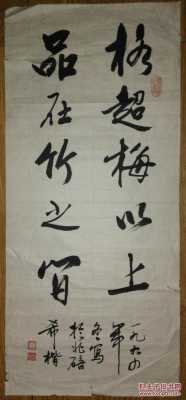 格超梅以上
品在竹之間
一九六四年
冬寫
於北碚